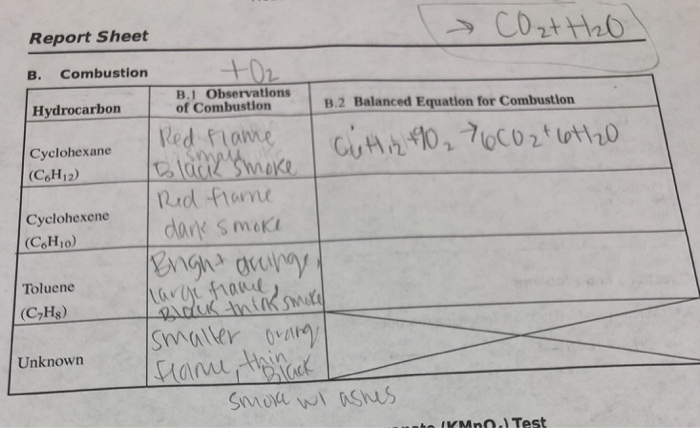 → CO2+H2O
Report Sheet
B. Combustion
+O2
Hydrocarbon
B.1 Observations
of Combustion
B.2 Balanced Equation for Combustion
Cyclohexane
(C6H12)
Red flame
small
Black smoke
C6H12+9O2→6CO2+6H2O
Cyclohexene
(C6H10)
Red flame
dark smoke
Toluene
(C7H8)
Bright orange,
large flame,
Black thick smoke
Unknown
smaller orang
flame, thin
Black
smoke w/ ashes
(KMnO4) Test